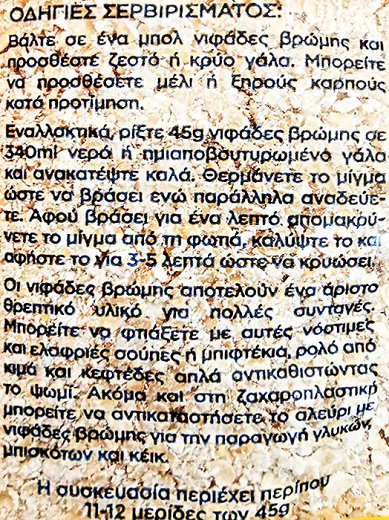 ΟΔΗΓΙΕΣ ΣΕΡΒΙΡΙΣΜΑΤΟΣ:
Βάλτε σε ένα μπολ νιφάδες βρώμης και
προσθέστε ζεστό ή κρύο γάλα. Μπορείτε
να προσθέσετε μέλι ή ξηρούς καρπούς
κατά προτίμηση.
Εναλλακτικά, ρίξτε 45g νιφάδες βρώμης σε
340ml νερό ή ημιαποβουτυρωμένο γάλα
και ανακατέψτε καλά. Θερμάνετε το μίγμα
ώστε να βράσει ενώ παράλληλα αναδεύε-
τε. Αφού βράσει για ένα λεπτό απομακρύ-
νετε το μίγμα από τη φωτιά, καλύψτε το και
αφήστε το για 3-5 λεπτά ώστε να κρυώσει.
Οι νιφάδες βρώμης αποτελούν ένα άριστο
θρεπτικό υλικό για πολλές συνταγές.
Μπορείτε να φτιάξετε με αυτές νόστιμες
και ελαφριές σούπες ή μπιφτέκια, ρολό από
κιμά και κεφτέδες απλά αντικαθιστώντας
το ψωμί. Ακόμα και στη ζαχαροπλαστική
μπορείτε να αντικαταστήσετε το αλεύρι με
νιφάδες βρώμης για την παραγωγή γλυκών,
μπισκότων και κέικ.
Η συσκευασία περιέχει περίπου
11-12 μερίδες των 45g